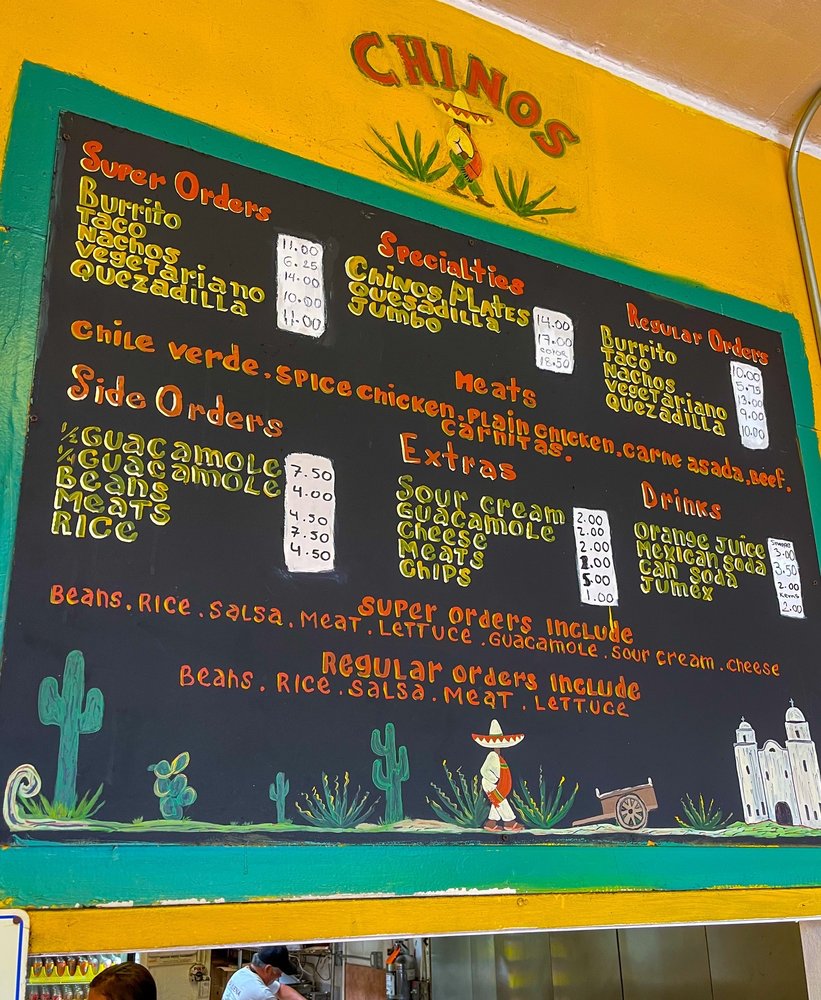 CHINOS
Super Orders
Burrito 11.00
Taco 6.25
Nachos 14.00
Vegetariano 10.00
Quezadilla 11.00
Specialties
Chinos PLATES 14.00
Guesadilla 17.00
Jumbo 18.50
Regular Orders
Burrito 10.00
Taco 5.75
Nachos 13.00
Vegetariano 9.00
Quezadilla 10.00
Meats
Chile verde. Spice chicken. Plain chicken. carne asada. Beef.
Carnitas.
Side Orders
1/2 Guacamole 7.50
1/4 Guacamole 4.00
Beans 4.50
Meats 7.50
Rice 4.50
Extras
Sour cream 2.00
Guacamole 2.00
cheese 2.00
Meats 5.00
Chips 1.00
Drinks
Orange Juice 3.00
Mexican Soda 3.50
can Soda 2.00
Jumex 2.00
Super orders include
Beans. Rice. Salsa. Meat. Lettuce. Guacamole. Sour cream. cheese
Regular orders include
Beans. Rice. Salsa. Meat. Lettuce